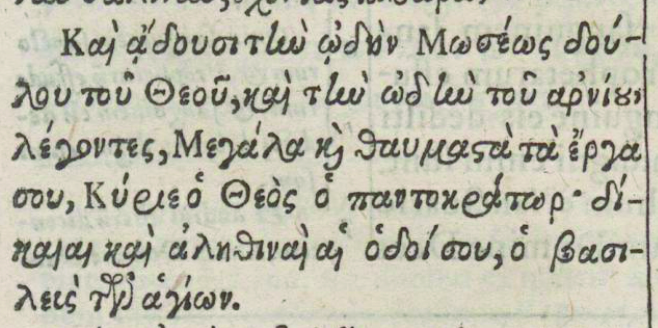 Καὶ ᾄδουσι τὴν ᾠδὴν Μωσέως δού-
λου τοῦ Θεοῦ, καὶ τὴν ᾠδὴν τοῦ ἀρνίου,
λέγοντες, Μεγάλα καὶ θαυμαστὰ τὰ ἔργα
σου, Κύριε ὁ Θεὸς ὁ παντοκράτωρ· δί-
καιαι καὶ ἀληθιναὶ αἱ ὁδοί σου, ὁ βασι-
λεὶς τῶν ἁγίων.